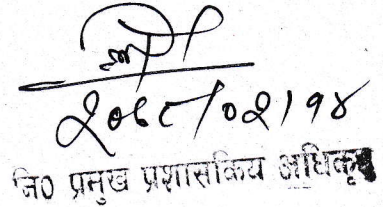 २०६८/०२/१४
नि० प्रमुख प्रशासकिय अधिकृत